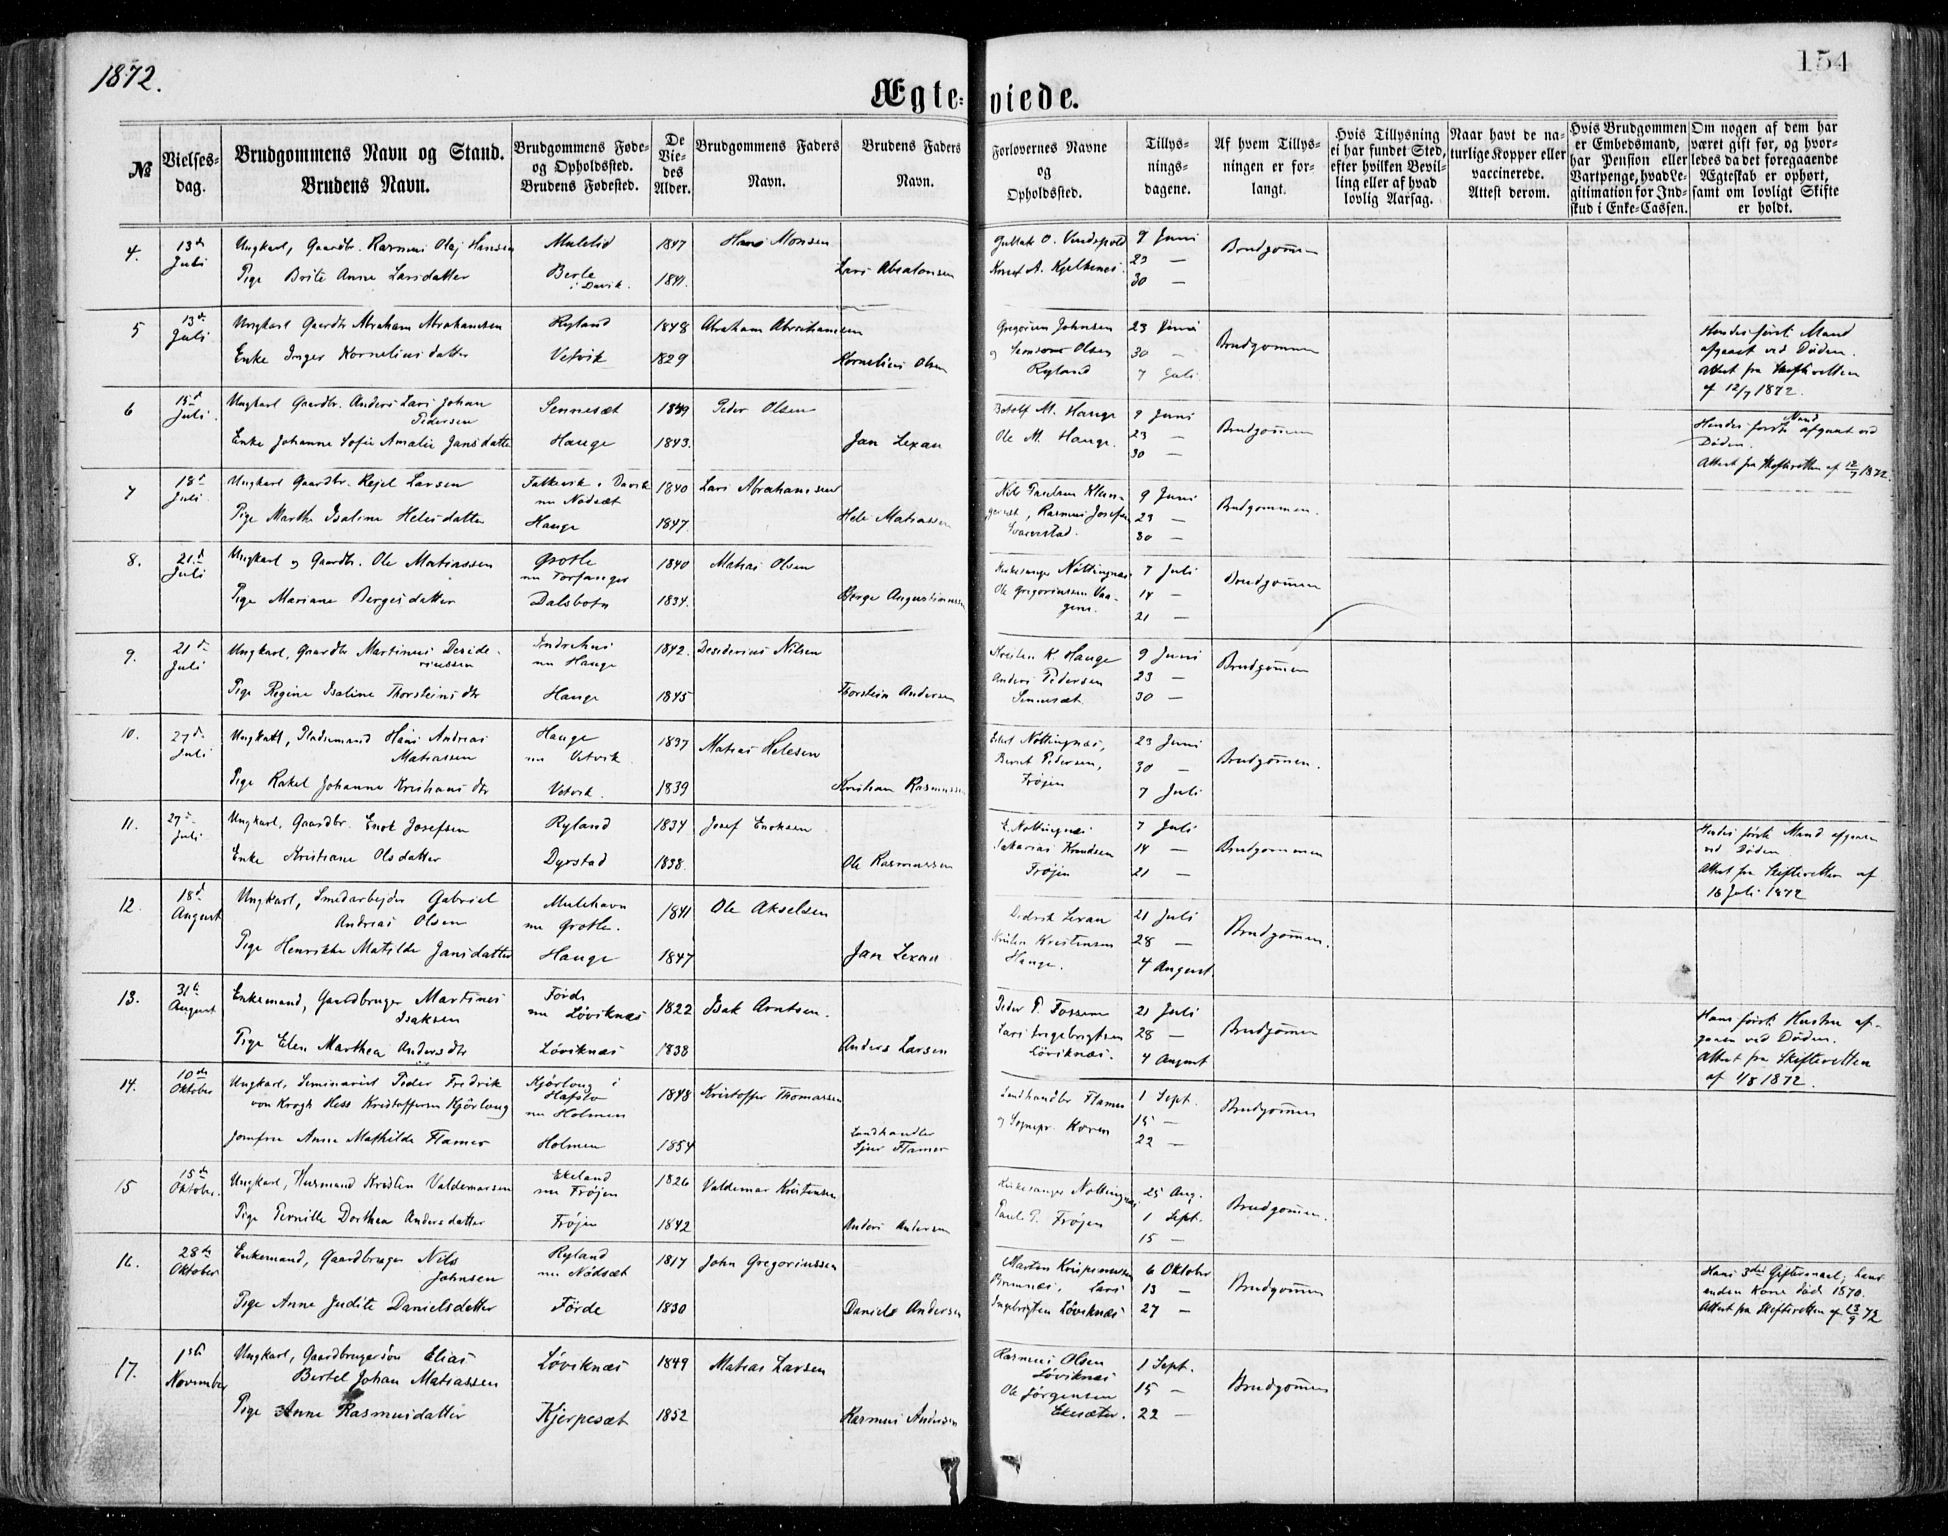 1872.
154
Ægteviede.
№
Vielses-
dag.
Brudgommens Navn og Stand.
Brudens Navn.
Brudgommens Føde-
og Opholdssted.
Brudens Fødested.
De
Vie-
des
Alder.
Brudgommens Faders
Navn.
Brudens Faders
Navn.
Forlovernes Navne
og
Opholdssted.
Tillys-
nings-
dagene.
Af hvem Tillys-
ningen er for-
langt.
Hvis Tillysning
ei har fundet Sted,
efter hvilken Bevil-
ling eller af hvad
lovlig Aarsag.
Naar havt de na-
turlige Kopper eller
vaccinerede.
Attest derom.
Hvis Brudgommen
er Embedsmand,
har Pension eller
Vartpenge, hvad Le-
gitimation for Ind-
skud i Enke-Cassen.
Om nogen af dem har
været gift før, og hvor-
ledes da det foregaaende
Ægteskab er ophørt,
samt om lovligt Skifte
er holdt.
4. 13de Juli Ungkarl, Gaardbr. Rasmus Olaj Hansen Muletid 1847 Hans Monsen 9 Juni Brudgommen
Pige Brite Anne Larsdatter Berle i Davik. 1841. Lars Absalonsen Knud A. Kjelkenes. 23 —
30 —
5 13de Juli. Ungkarl Gaardbr Abraham Abrahamsen Ryland 1848 Abraham Abrahamsen Gregorius Johnsen 23 Juni Brudgommen Hendes første Mand
Enke Inger Kornelius datter Vetvik 1829 Kornelius Olsen og Olsen 30 — afgaaet ved Døden.
Ryland 7 Juli Attest fra Skifteretten
af 12/7 1872.
6 15d Juli. Ungkarl Gaardbr. Anders Lars Johan Pedersen Sennesæt 1849 Peder Olsen Botolf M. Hauge 9 Juni Brudgommen Hendes første Mand afgaaet ved
Enke Johanne Sofie Amalie Jansdatter Hauge 1843. Jan Lexau Ole M. Hauge. 23 — Døden.
30 — Attest fra Skifteretten af 12/7 1872.
7 18d Juli Ungkarl Gaardbr. Kejel Larsen i Davik nu Nødsæt 1840 Lars Abrahamsen 9 Juni Brudgommen.
Pige Marthe Isaline Helesdatter Hauge 1847. Hele Matiassen Rasmus Josefsen 23 —
30 —
8. 21d Juli Ungkarl og Gaardbr. Ole Matiassen Grotle nu Torfanger 1840 Matias Olsen Kirkesanger Nöttingnæs 7 Juli Brudgommen
Pige Mariane Bergesdatter Dalsbotn 1834. Berge Augustinussen Ole Gregoriussen Vaa- 14 —
gene. 21 —
9. 21d Juli Ungkarl, Gaardbr Martinus Deside-
riussen Indrehus nu Hauge 1842. Desiderius Nilsen Kristen K. Hauge 9 Juni Brudgommen
Pige Regine Isaline Thorsteinsdtr Hauge 1845 Thorstein Andersen Anders Pedersen 23 —
Sennesæt. 30 —
10. 27d Juli Ungkarl, Pladsemand Hans Andreas Matiassen Hauge nu Vetvik. 1837 Matias Helesen Nöttingnæs, 23 Juni Brudgommen.
Pige Rakel Johanne Kristians dtr Vetvik. 1839 Kristian Rasmussen Bernt Pedersen, 30 —
Frøjen 7 Juli
11. 27d Juli Ungkarl, Gaardbr. Enok Josefsen Ryland 1834 Josef Enoksen E. Nöttingnæs 7 Juli Brudgommen Hendes første Mand afgaaen
Enke Kristiane Olsdatter Dyrstad 1838. Ole Rasmussen Sakarias Knudsen 14 — ved Døden.
Frøjen 21 — Attest fra Skifteretten af
16 Juli 1872
12. 18d August Ungkarl, Smedarbejder Gabriel Andreas Olsen Mulehavn nu Grotle. 1841 Ole Akselsen Didrik Lexau 21 Juli Brudgommen.
Pige Henrikke Matilde Jansdatter Hauge 1847 Jan Lexau Kristen Kristensen 28 —
Hauge. 4 August
13. 31te August Enkemand, Gaardbruger Martines Isaksen Førde nu Løviknæs 1822 Isak Arntsen. Peder P. Fossum 21 Juli Brudgommen Hans første Hustru af-
Pige Elen Marthea Andersdtr Løviknæs 1838 Anders Larsen Lars Ingebrigtsen 28 — gaaen ved Døden.
Løviknæs. 4 August Attest fra Skifteretten
af 1/8 1872.
14. 10de Oktober Ungkarl, Seminarist Peder Fredrik von Krogh Hess Kristoffersen Kjörlaug Kjörlaug i Hafslo nu Holmen 1848 Kristoffer Thomassen Landhandler Flamer 1 Sept. Brudgommen
Jomfru Anne Mathilde Flamer Holmen 1854 Landhandler Sjur Flamer og Sognepr. Koren 15 —
22 —
15 15de Oktober. Ungkarl, Husmand Kristen Valdemarsen Ekeland nu Frøjen 1826 Valdemar Kristensen Kirkesanger Nöttingnæs 25 Aug. Brudgommen.
Pige Pernille Dorthea Andersdatter Frøjen 1842 Anders Andersen Paul P. Frøjen 1 Sept.
15 —
16. 28de Oktober Enkemand, Gaardbruger Nils Johnsen Ryland nu Nødsæt 1817 John Gregoriussen Marten Krispinussen 6 Oktober Brudgommen Hans 3die Giftermaal; hans
Pige Anne Judite Danielsdatter Førde 1830 Daniels Andersen Lars 13 — anden Kone død 1870.
Ingebrigtsen Løviknæs 27 — Attest fra Skifteretten af 13/9 72
17. 1ste November Ungkarl, Gaardbrugersøn Elias Bertel Johan Matiassen Løviknæs 1849 Matias Larsen Rasmus Olsen Løviknæs 1 Sept. Brudgommen
Pige Anne Rasmusdatter Kjerpesæt 1852 Rasmus Andersen Ole Jørgensen 15 —
Ekesæter. 22 —